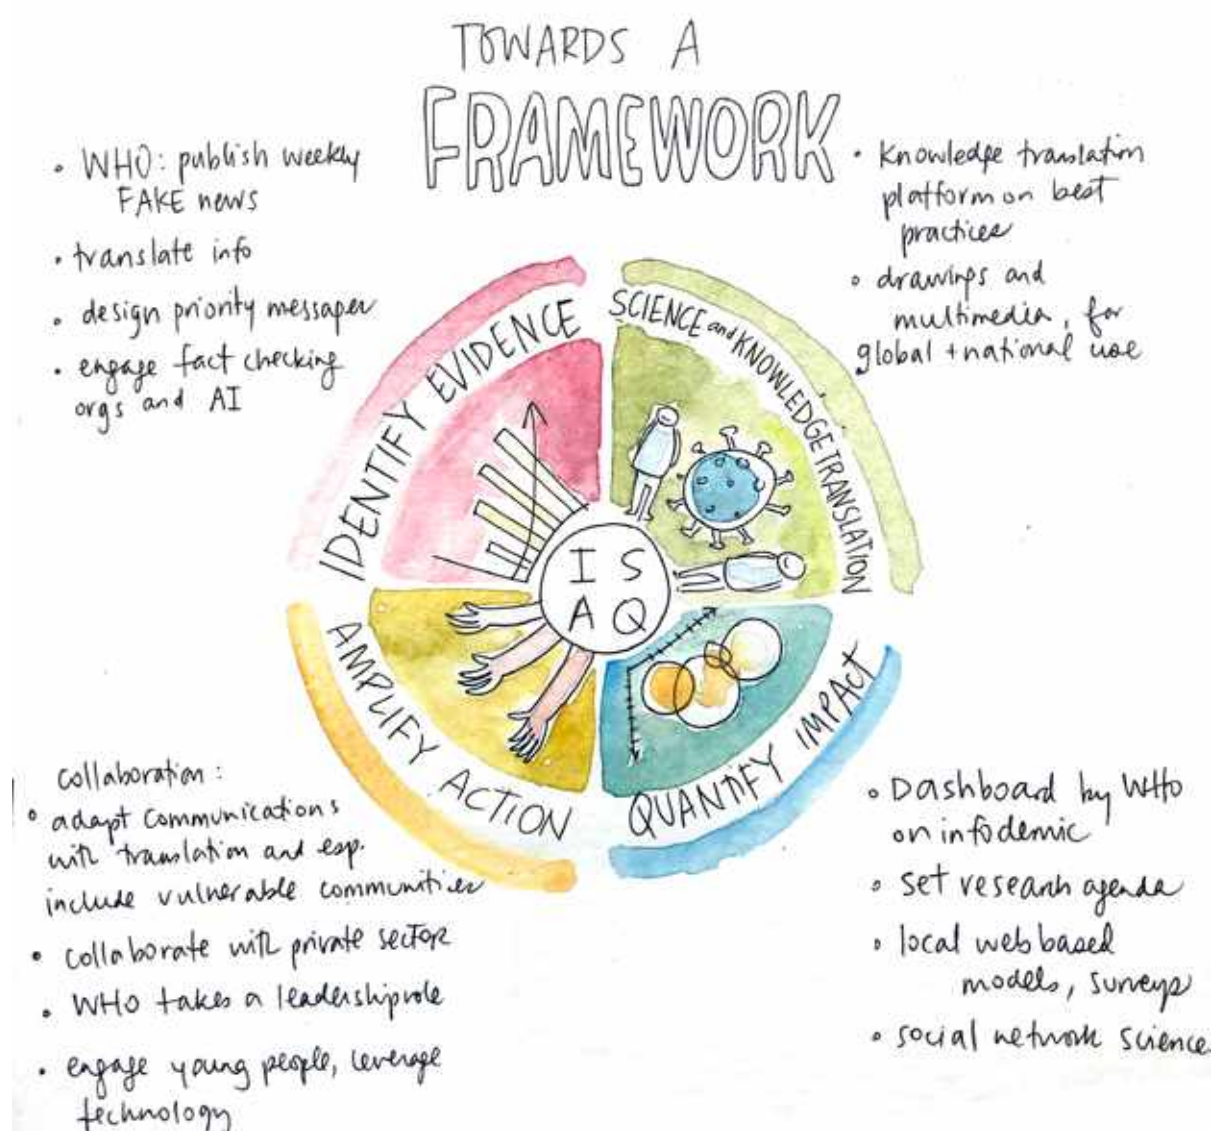 TOWARDS A
FRAMEWORK
• WHO: publish weekly
FAKE news
• translate info
• design priority messages
• engage fact checking
orgs and AI
• Knowledge translation
platform on best
practices
• drawings and
multimedia, for
global + national use
IDENTIFY EVIDENCE
SCIENCE and KNOWLEDGE TRANSLATION
I S
A Q
AMPLIFY ACTION
QUANTIFY IMPACT
collaboration:
• adapt communications
with translation and esp.
include vulnerable communities
• collaborate with private sector
• WHO takes a leadership role
• engage young people, leverage
technology
• Dashboard by WHO
on infodemic
• set research agenda
• local web based
models, surveys
• social network science